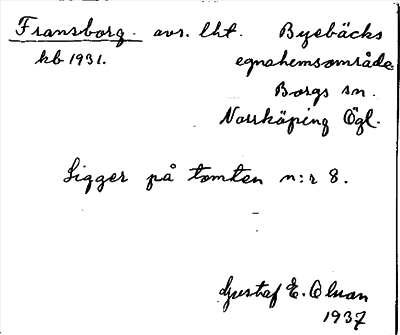 Fransborg. avs. lht. Byebäcks
kb 1931. egnahemsområde
Borgs sn.
Norrköping Ögl.
Ligger på tomten n:r 8.
Gustaf E. Olsson
1937